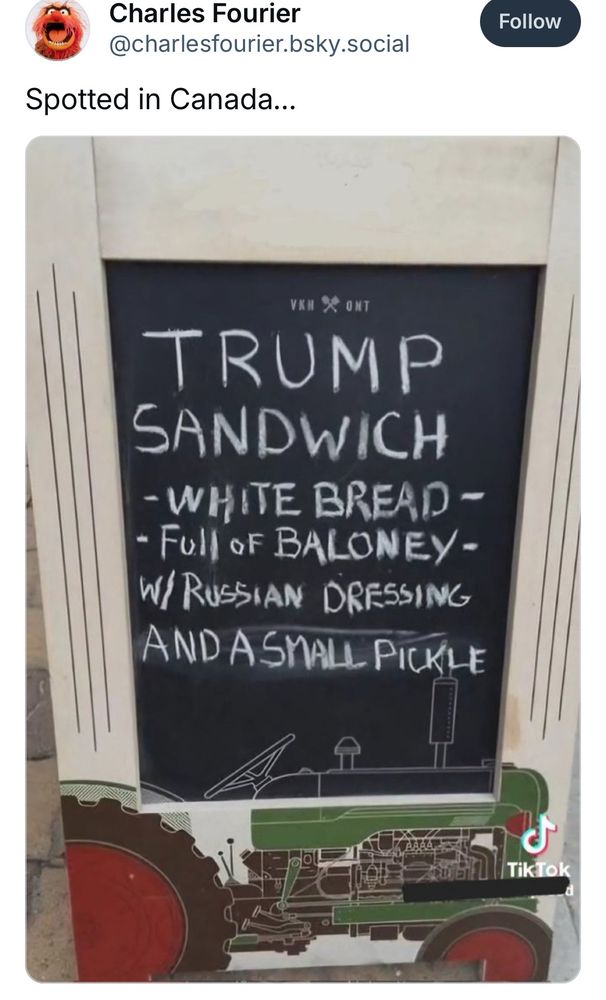 Charles Fourier
@charlesfourier.bsky.social
Follow
Spotted in Canada...
VKH ONT
TRUMP
SANDWICH
-WHITE BREAD-
- Full of BALONEY-
W/ RUSSIAN DRESSING
AND A SMALL PICKLE
TikTok